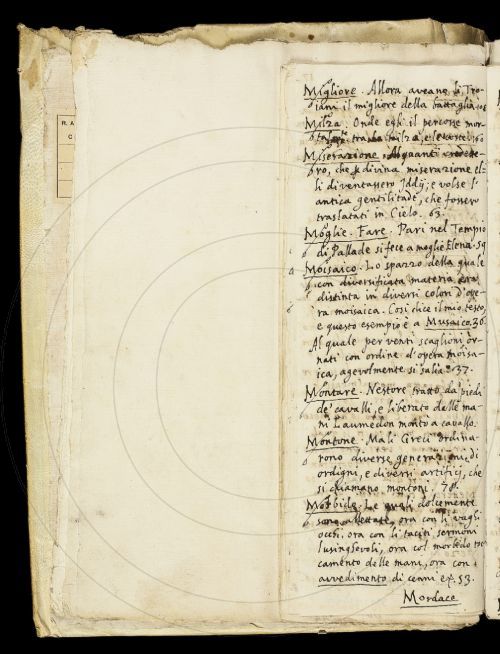 R A
C
Migliore. Allora aveano li Tro-
iani il migliore della battaglia
Milza. Onde egli il percosse mor-
tra la milza, e le coste. 60
Miserazione. Alquanti credette-
ro, che divina miserazione el-
li diventassero Iddij; e volse l'
antica gentilitade, che fossero
traslatati in Cielo. 63.
Moglie. Fare. Pari nel Tempio
di Pallade si fece a moglie Elena. 59
Moisaico. Lo spazzo della quale
con diversificata materia era
distinta in diversi colori d'ope-
ra moisaica. Così dice il mio testo,
e questo esempio è a Musaico. 36.
Al quale per venti scaglioni or-
nati con ordine d'opera moisa-
ica, agevolmente si salia. 37.
Montare. Nestore tratto da' piedi
de' cavalli, e liberato dalle ma-
ni Laumedon montò a cavallo.
Montone. Mali Greci ordina-
rono diverse generazioni di
ordigni, e diversi artificj, che
si chiamano montoni. 78.
Morbido. Le quali dolcemente
sono allettate, ora con li vaghi
occhi, ora con li taciti sermoni
lusinghevoli, ora col morbido toc-
camento delle mani, ora con
avvedimento di cenni 53.
Mordace